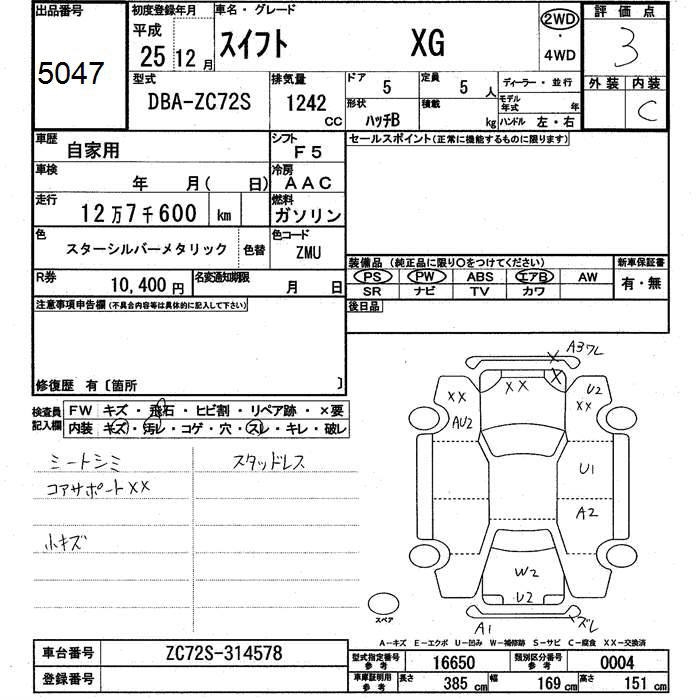 出品番号 初度登録年月 車名・グレード 2WD 評価点
5047 平成 25 12月 スイフト XG ・ 4WD 3
型式 排気量 ドア 5 定員 5人 ディーラー・並行 外装 内装
DBA-ZC72S 1242cc 形状 ハッチB 積載 kg モデル年式 年 ハンドル 左・右 C
車歴 自家用 シフト F5 セールスポイント(正常に機能するものに限ります)
車検 年 月( 日) 冷房 AAC
走行 12万7千600 km 燃料 ガソリン
色 スターシルバーメタリック 色替 色コード ZMU
装備品(純正品に限り○をつけてください) 新車保証書
R券 10,400円 名変通知期限 月 日 PS PW ABS エアB AW 有・無
SR ナビ TV カワ
注意事項申告欄(不具合内容等は具体的に記入して下さい) 後日品
修復歴 有〔箇所 〕
検査員記入欄 FW キズ・飛石・ヒビ割・リペア跡・×要
内装 キズ・汚レ・コゲ・穴・スレ・キレ・破レ
シートシミ スタッドレス
コアサポートXX
小キズ
A3ワレ
X X
XX XX U2
AU2 XX
U1
A2
W2
U2
A1 ズレ
スペア
A-キズ E-エクボ U-凹み W-補修跡 S-サビ C-腐食 XX-交換済
車台番号 ZC72S-314578 型式指定番号 参考 16650 類別区分番号 参考 0004
登録番号 車庫証明用 参考 長さ 385cm 幅 169cm 高さ 151cm